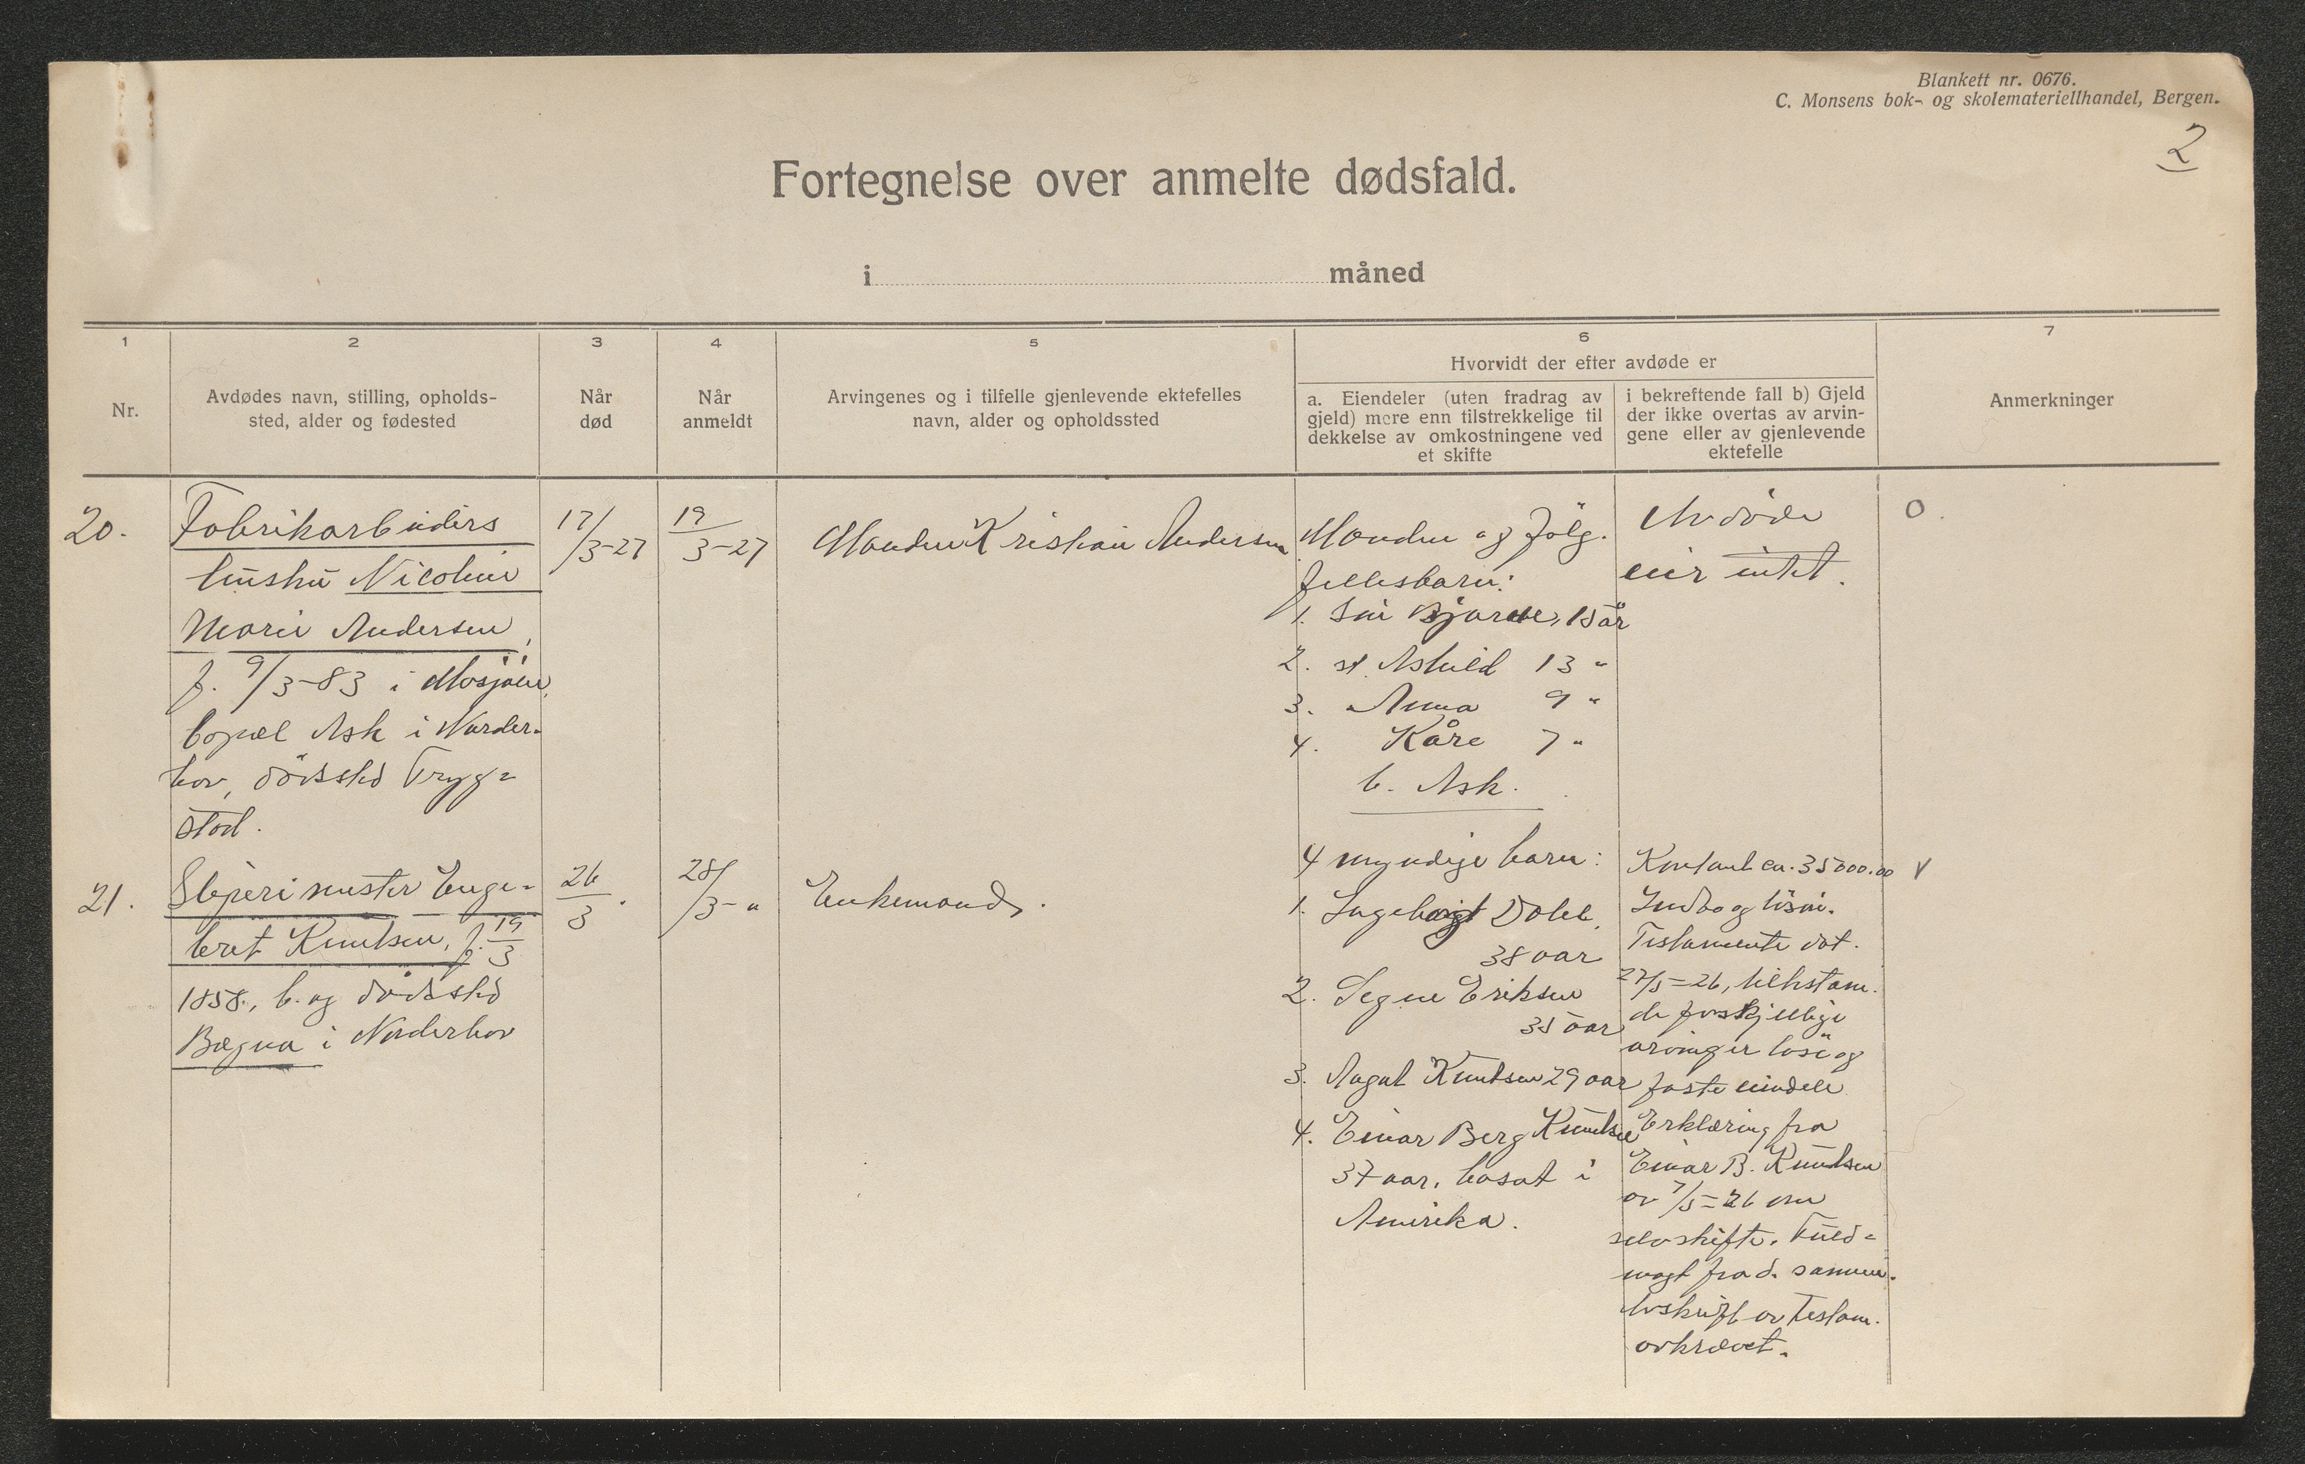 Blankett nr. 0676.
C. Monsens bok- og skolemateriellhandel, Bergen.
2
Fortegnelse over anmelte dødsfald.
i måned
1
2
3
4
5
6
7
Nr.
Avdødes navn, stilling, opholds-
sted, alder og fødested
Når
død
Når
anmeldt
Arvingenes og i tilfelle gjenlevende ektefelles
navn, alder og opholdssted
Hvorvidt der efter avdøde er
a. Eiendeler (uten fradrag av
gjeld) mere enn tilstrekkelige til
dekkelse av omkostningene ved
et skifte
i bekreftende fall b) Gjeld
der ikke overtas av arvin-
gene eller av gjenlevende
ektefelle
Anmerkninger
20.
Fabrikarbeiders
hustru Nicoline
Marie Andersen,
f. 9/3-83 i Mosjøen,
bopæl Ask i Norder-
hov, dödssted Tryg=
stad.
17/3-27
19/3-27
Manden Kristian Andersen
Manden og fölg.
fellesbarn:
1. Bjarne, 15 år
2. Ashild 13 "
3. Anna 9 "
4. Kåre 7 "
b. Ask.
Avdöde
eier intet.
0.
21.
Sliperimester Enge=
bret Knutsen, f. 19/3
1858, b. og dödssted
Bægna i Norderhov
26/3.
28/3-"
Enkemand.
4 myndige barn:
1. Ingeborg
38 aar
2. Signe Eriksen
35 aar
3. August Knutsen 29 aar
4. Einar Berg Knutsen
37 aar, bosat i
Amerika.
Kontant ca. 35000.00
Indbo og lösöre.
Testamente dat.
27/5=26, tilhstam.
de forskjellige
arvinger löse og
faste eiendele
Erklæring fra
Einar B. Knudsen
av 7/5=26 om
selvskifte. Fuld=
magt fra d. samme.
Avskrift av Testam.
avkrævet.
v